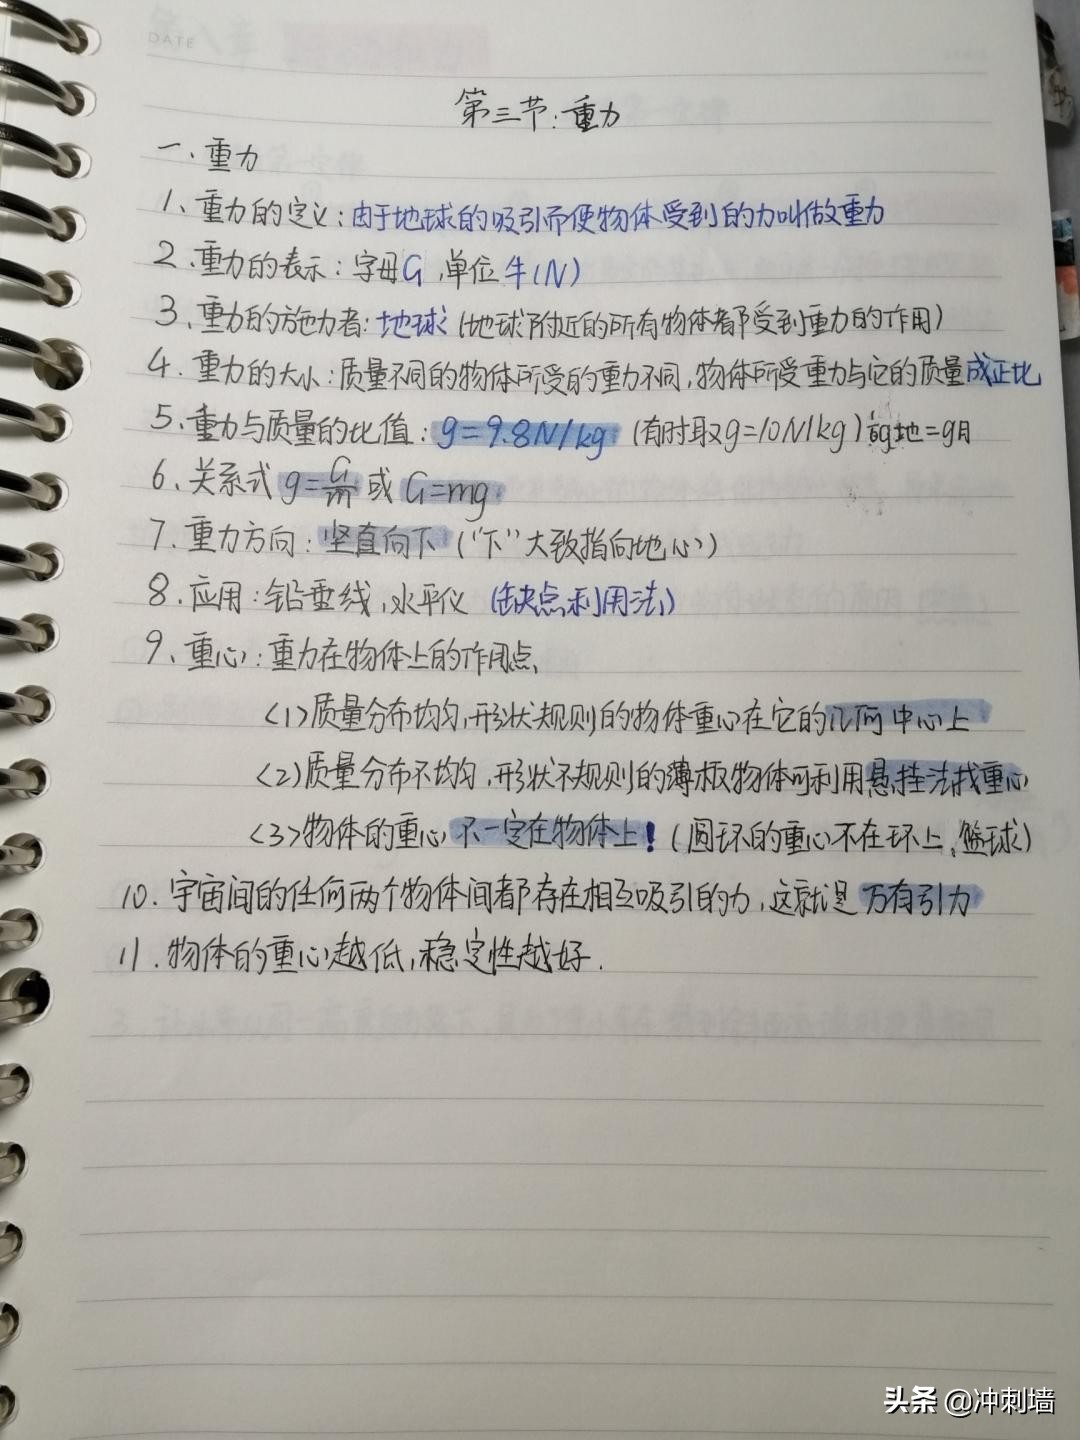 DATE
第三节:重力
一、重力
1、重力的定义:由于地球的吸引而使物体受到的力叫做重力
2.重力的表示:字母G,单位牛(N)
3、重力的施力者:地球(地球附近的所有物体都受到重力的作用)
4.重力的大小:质量不同的物体所受的重力不同,物体所受重力与它的质量成正比
5.重力与质量的比值:g=9.8N/kg (有时取g=10N/kg) g地=g月
6、关系式g=G/m或G=mg
7.重力方向:坚直向下("下"大致指向地心)
8.应用:铅垂线,水平仪(缺点利用法)
9、重心:重力在物体上的作用点、
(1)质量分布均匀,形状规则的物体重心在它的几何中心上
(2)质量分布不均匀,形状不规则的薄板物体可利用悬挂法找重心
(3)物体的重心不一定在物体上!(圆环的重心不在环上、篮球)
10.宇宙间的任何两个物体间都存在相互吸引的力,这就是万有引力
11.物体的重心越低,稳定性越好.
头条 @冲刺墙